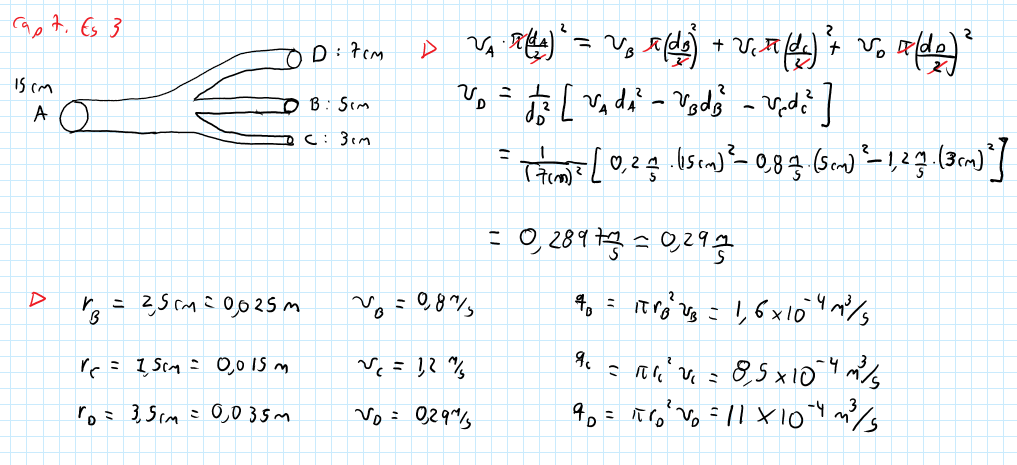 Cap 7. Es 3
15 cm
A
D : 7cm
B : 5cm
C : 3cm
▷ v_A · π(d_A/2)² = v_B π(d_B/2)² + v_C π(d_C/2)² + v_D π(d_D/2)²
v_D = 1/d_D² [ v_A d_A² − v_B d_B² − v_C d_C² ]
= 1/(7cm)² [ 0,2 m/s · (15cm)² − 0,8 m/s · (5cm)² − 1,2 m/s · (3cm)² ]
= 0,2897 m/s = 0,29 m/s
▷ r_B = 2,5 cm = 0,025 m v_B = 0,8 m/s q_B = π r_B² v_B = 1,6 × 10⁻⁴ m³/s
r_C = 1,5cm = 0,015 m v_C = 1,2 m/s q_C = π r_C² v_C = 8,5 × 10⁻⁴ m³/s
r_D = 3,5cm = 0,035m v_D = 0,29 m/s q_D = π r_D² v_D = 11 × 10⁻⁴ m³/s